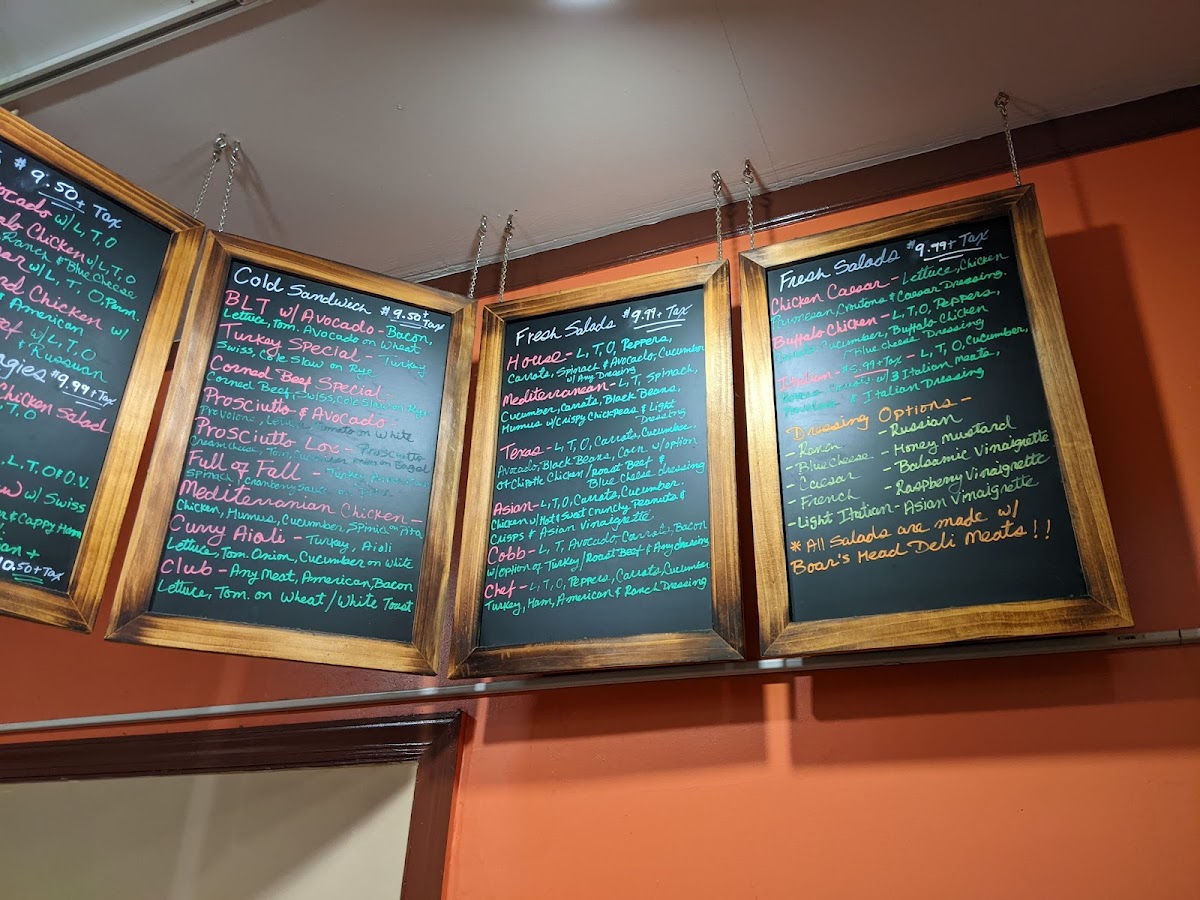 $9.50 + Tax
w/ L, T, O
Chicken w/ L, T, O
Ranch & Blue Cheese
w/ L, T, O, Parm.
Chicken w/
& American
w/ L, T, O
& Russian
$9.99 + Tax
Chicken Salad
L, T, O
L, T, O & O.V.
w/ Swiss
& Cappy Ham
+ Tax
Cold Sandwich $9.50 + Tax
BLT w/ Avocado - Bacon,
Lettuce, Tom. Avocado on Wheat
Turkey Special - Turkey
Swiss, Cole Slaw on Rye
Corned Beef Special
Corned Beef, Swiss, Cole Slaw on Rye
Prosciutto & Avocado
Provolone, Tomato on White
Prosciutto Lox - Prosciutto
Creamcheese, Tom, Cucumber on Bagel
Full of Fall - Turkey,
Spinach, Cranberry Sauce on
Mediterranean Chicken -
Chicken, Humus, Cucumber, Spinach on Pita
Curry Aioli - Turkey, Aioli
Lettuce, Tom. Onion, Cucumber on White
Club - Any Meat, American, Bacon
Lettuce, Tom. on Wheat / White Toast
Fresh Salads $9.99 + Tax
House - L, T, O, Peppers,
Carrots, Spinach & Avocado, Cucumber
w/ Any Dressing
Mediterranean - L, T, Spinach,
Cucumber, Carrots, Black Beans,
Humus w/ Crispy Chickpeas & Light
Dressing
Texas - L, T, O, Carrots, Cucumber.
Avocado, Black Beans, Corn w/ option
of Chipotle Chicken / Roast Beef &
Blue Cheese dressing
Asian - L, T, O, Carrots, Cucumber.
Chicken w/ Hot & Sweet Crunchy Peanuts &
Crisps & Asian Vinaigrette.
Cobb - L, T, Avocado, Carrots, Bacon
w/ option of Turkey / Roast Beef & Any dressing
Chef - L, T, O, Peppers, Carrots, Cucumber
Turkey, Ham, American & Ranch Dressing
Fresh Salads $9.99 + Tax
Chicken Caesar - Lettuce, Chicken
Parmesan, Croutons & Caesar Dressing.
Buffalo Chicken - L, T, O, Peppers,
Cucumber, Buffalo Chicken
& Blue Cheese Dressing
Italian - + Tax - L, T, O, Cucumber,
w/ 3 Italian meats,
& Italian Dressing
Dressing Options -
- Ranch - Russian
- Blue Cheese - Honey Mustard
- Caesar - Balsamic Vinaigrette
- French - Raspberry Vinaigrette
- Light Italian - Asian Vinaigrette
* All Salads are made w/
Boar's Head Deli Meats!!